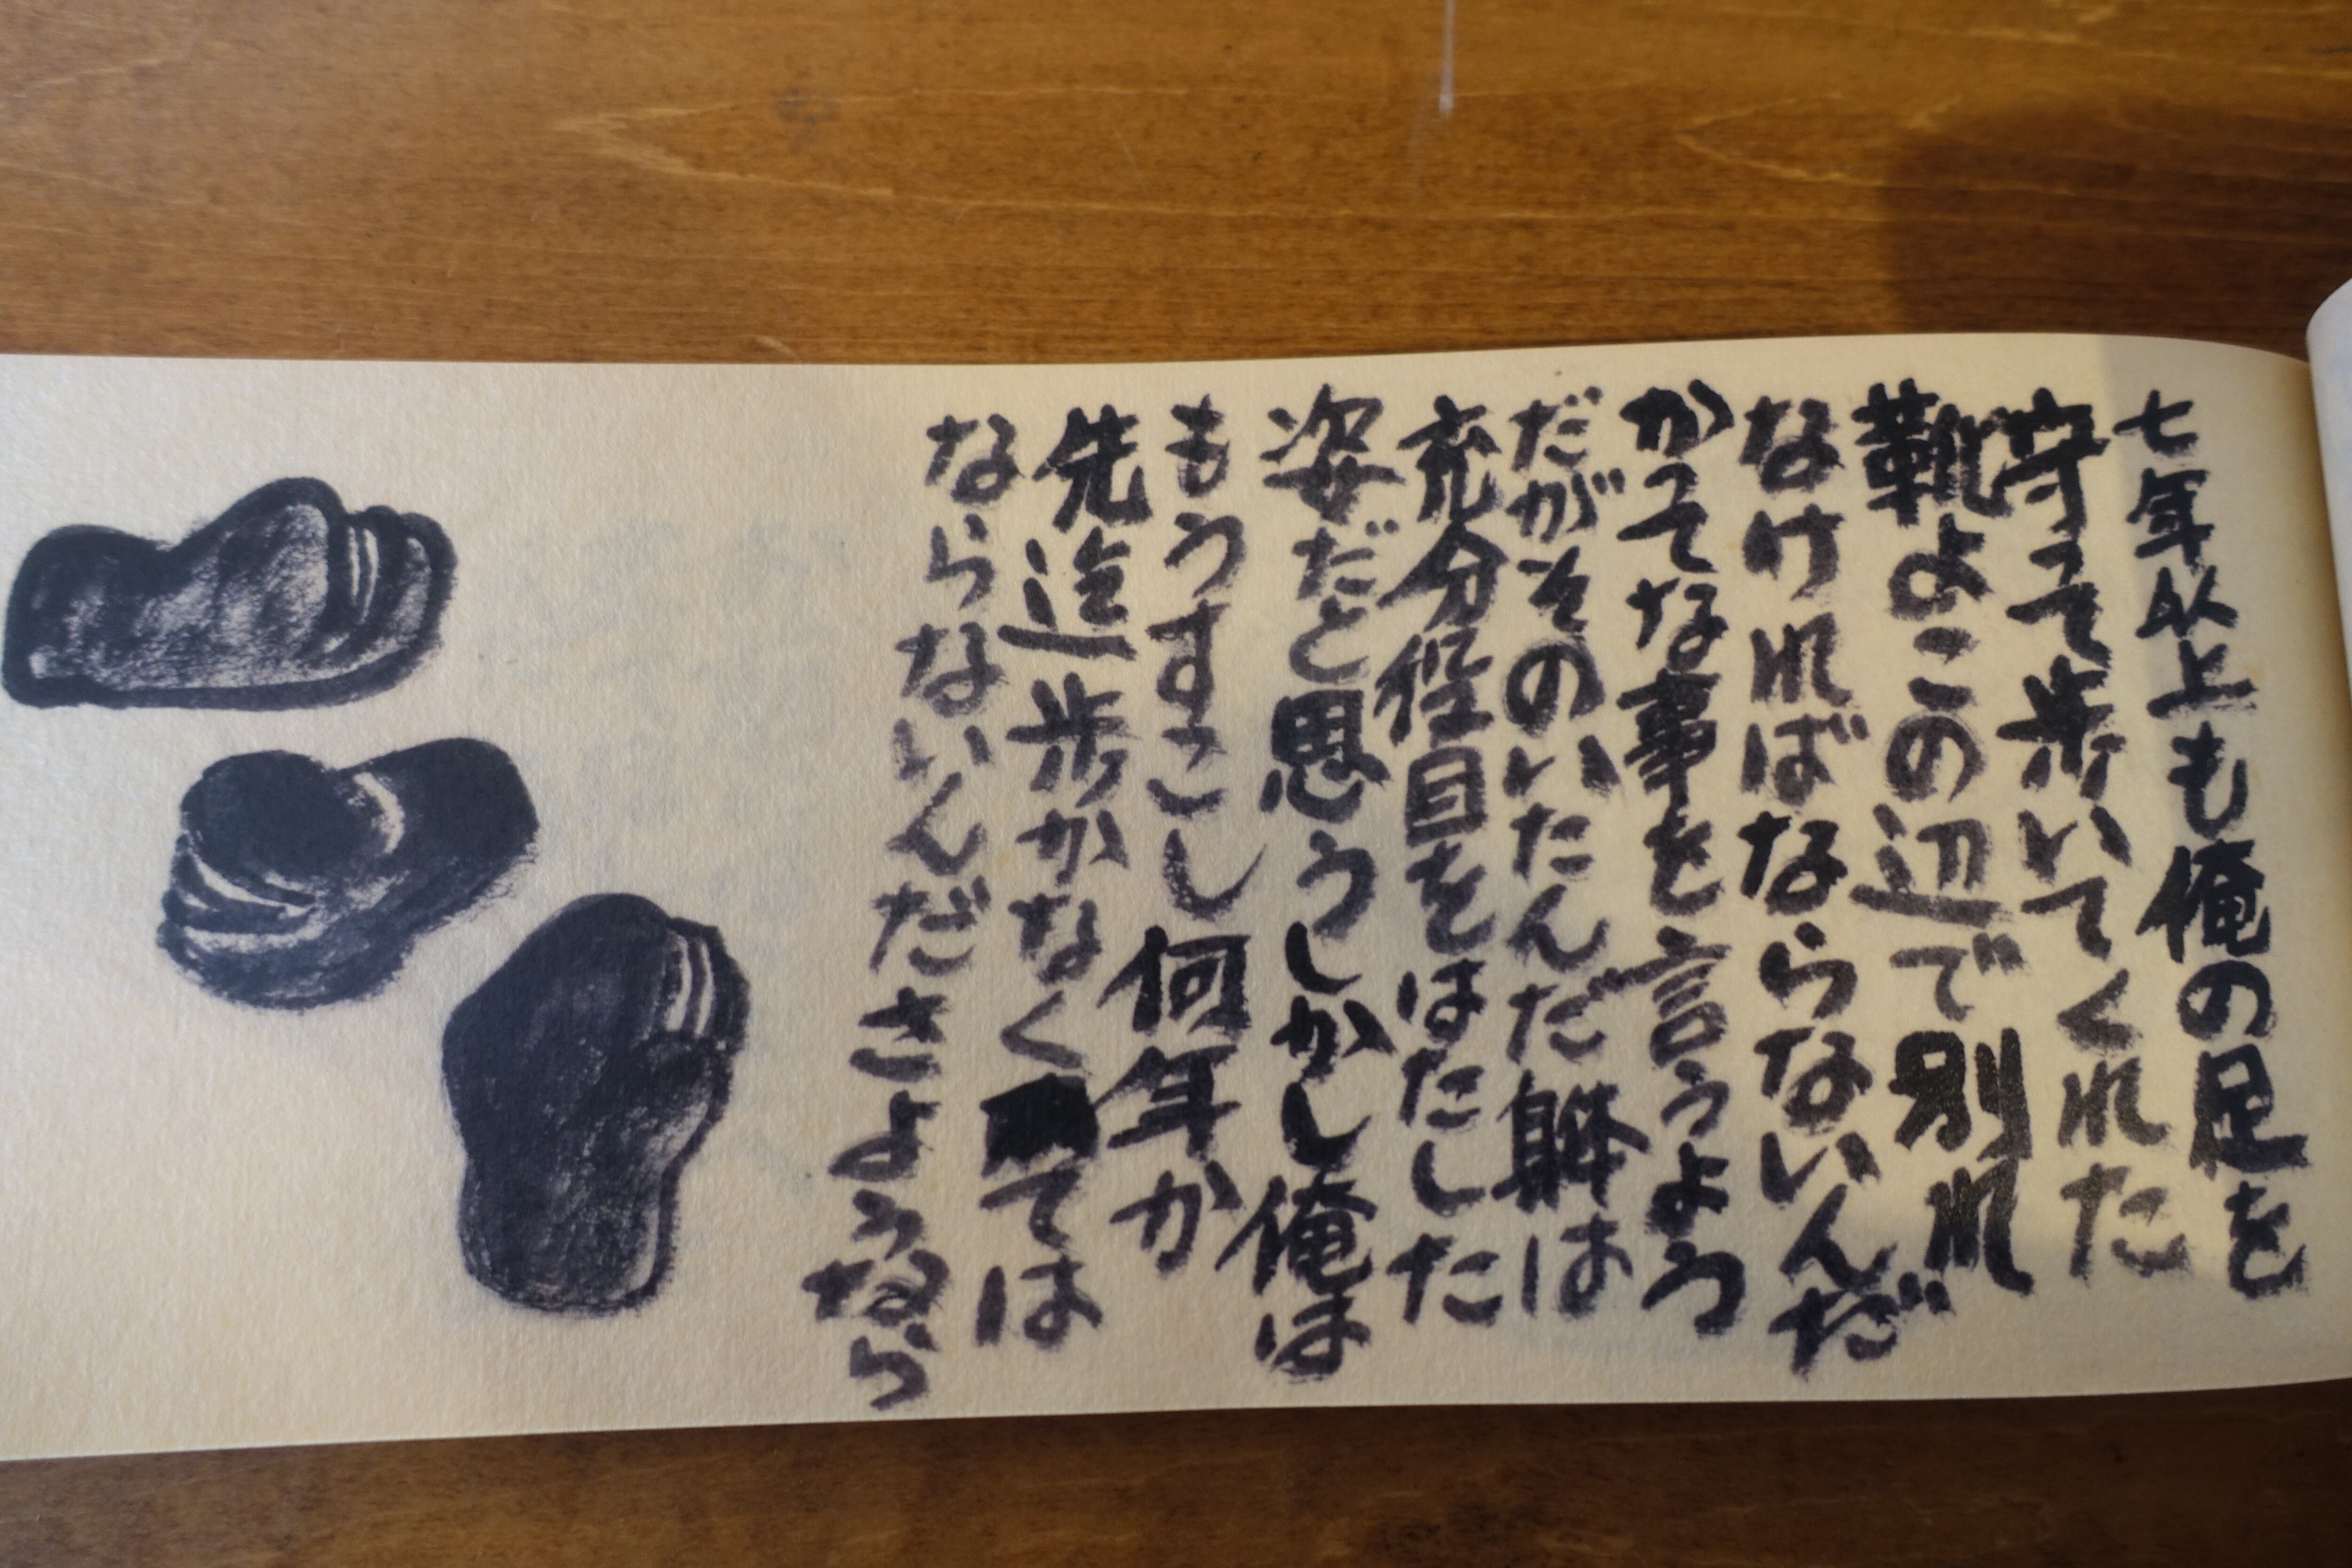 七年以上も俺の足を
守って歩いてくれた
靴よこの辺で別れ
なければならないんだ
かってな事を言うよう
だがそのいたんだ躰は
充分役目をはたした
姿だと思うしかし俺は
もうすこし何年か
先迄歩かなくては
ならないんださようなら